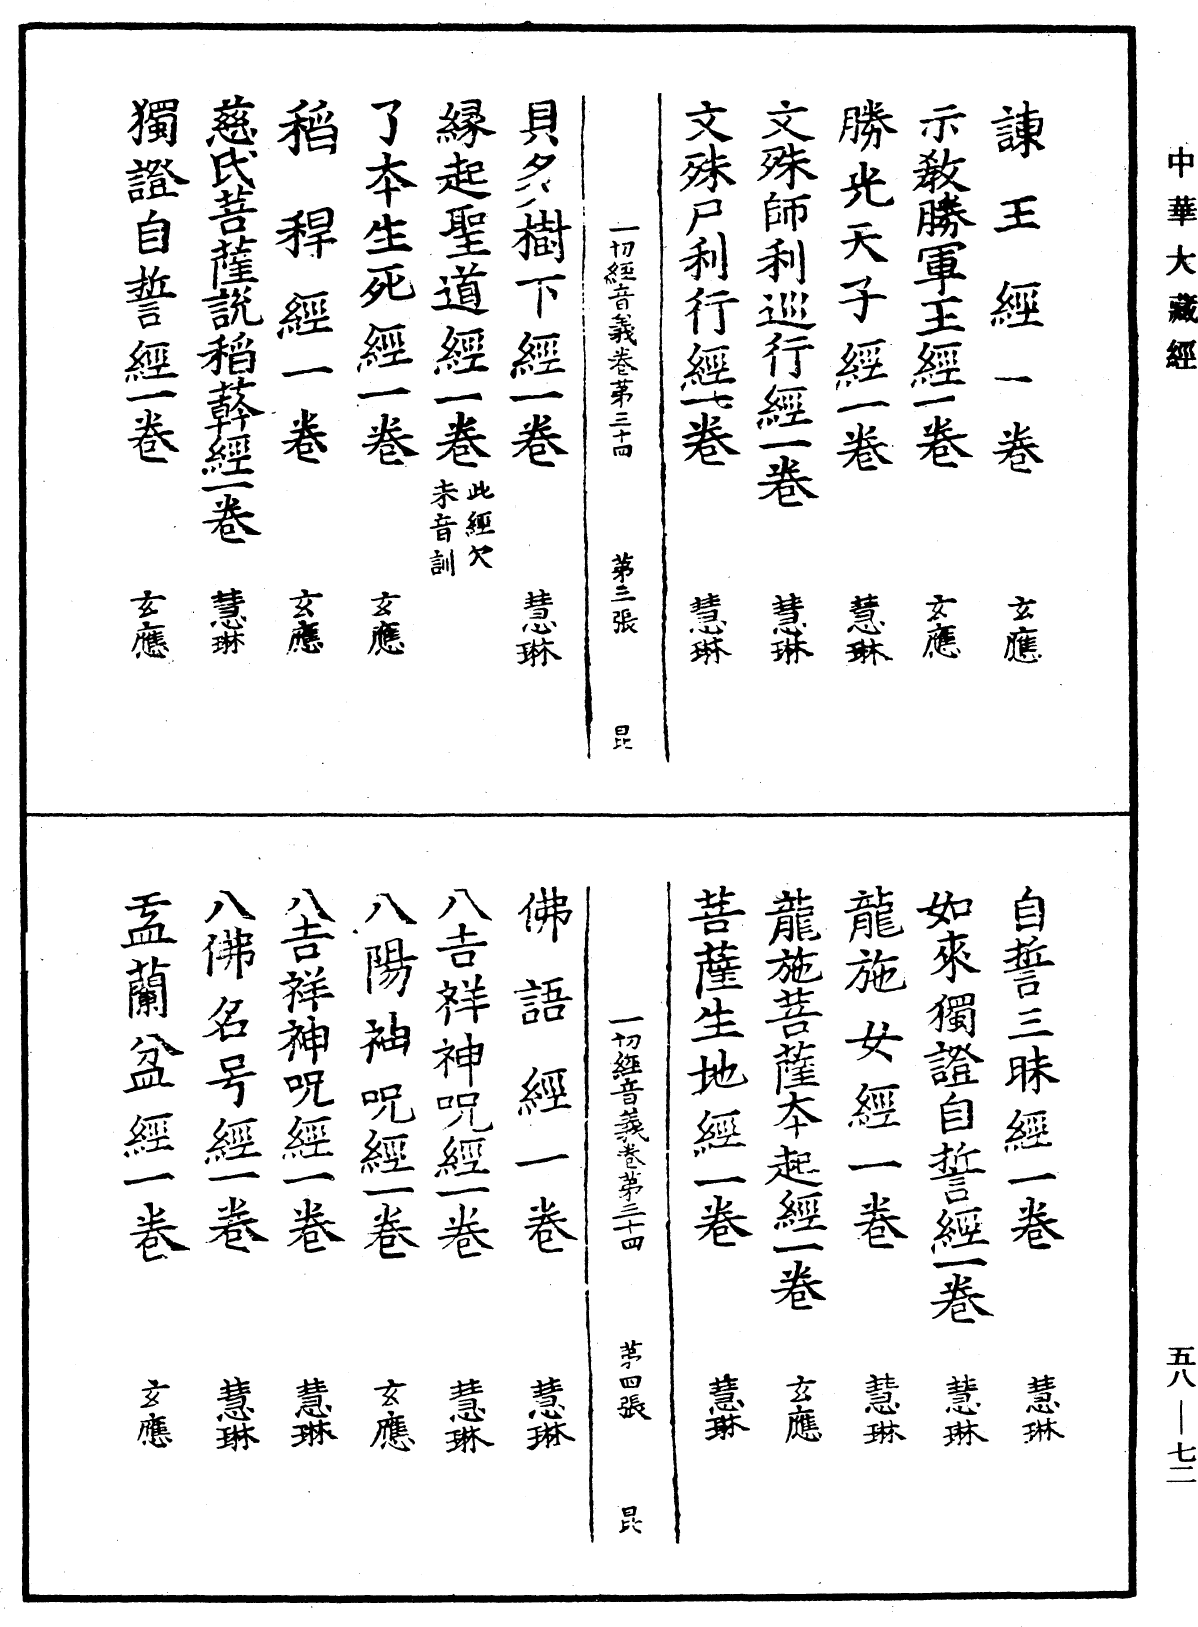 中華大藏經
諫王經一卷 玄應
示教勝軍王經一卷 玄應
勝光天子經一卷 慧琳
文殊師利巡行經一卷 慧琳
文殊尸利行經一卷 慧琳
一切經音義卷第三十四 第三張 昆
貝多樹下經一卷 慧琳
緣起聖道經一卷 此經欠
未音訓
了本生死經一卷 玄應
稻稈經一卷 玄應
慈氏菩薩說稻蓒經一卷 慧琳
獨證自誓經一卷 玄應
自誓三昧經一卷 慧琳
如來獨證自誓經一卷 慧琳
龍施女經一卷 慧琳
龍施菩薩本起經一卷 玄應
菩薩生地經一卷 慧琳
一切經音義卷第三十四 第四張 昆
佛語經一卷 慧琳
八吉祥神呪經一卷 慧琳
八陽神呪經一卷 玄應
八吉祥神呪經一卷 慧琳
八佛名号經一卷 慧琳
盂蘭盆經一卷 玄應
五八—七二